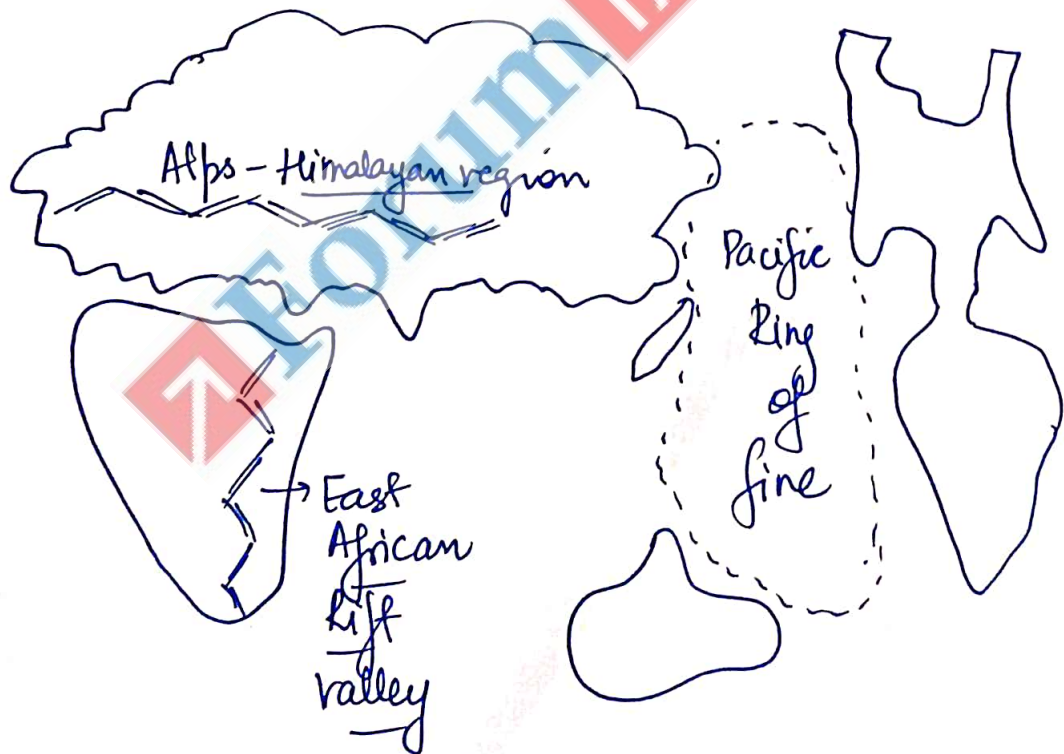 Forum
Alps - Himalayan region
Pacific
Ring
of
fire
East
African
Rift
valley